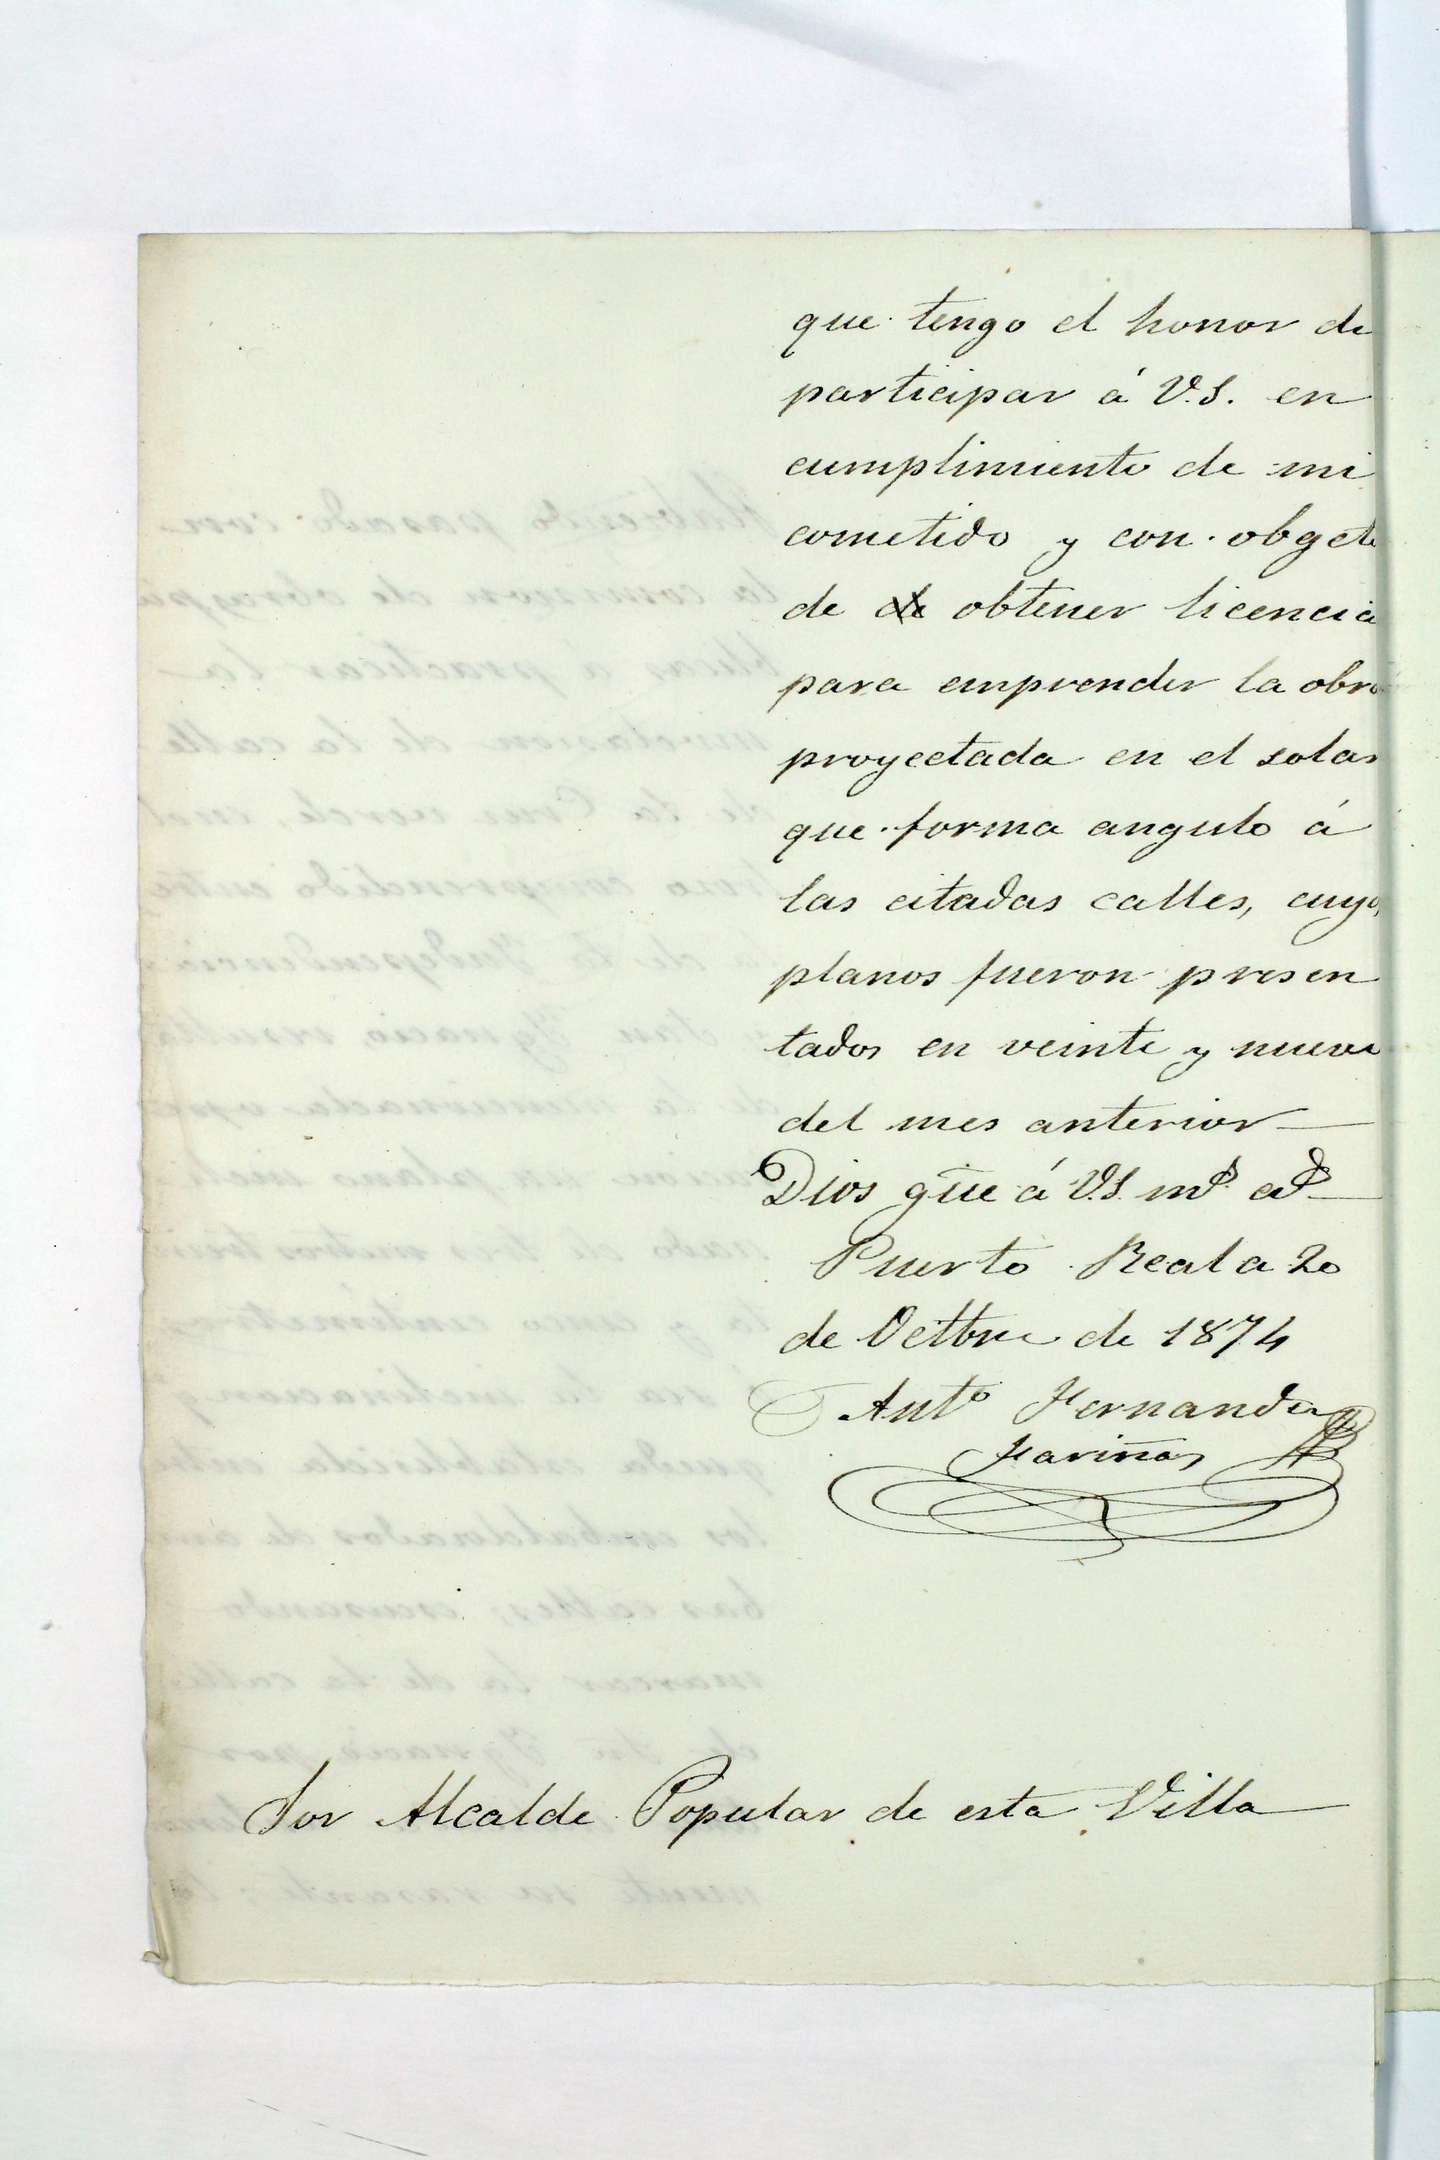 que tengo el honor de
participar á V.S. en
cumplimiento de mi
cometido y con obgeto
de de obtener licencia
para emprender la obra
proyectada en el solar
que forma angulo á
las citadas calles, cuyos
planos fueron presen
tados en veinte y nueve
del mes anterior
Dios gũe á V.S. mˢ. aˢ
Puerto Real a 20
de Octbre de 1874
Antº Fernandez
Fariñas
Sor Alcalde Popular de esta Villa